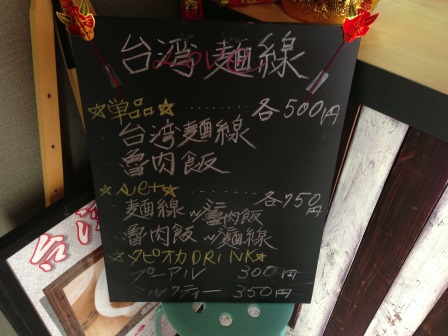 台湾麺線
☆単品☆ ‥‥‥‥ 各500円
台湾麺線
魯肉飯
☆set☆ ‥‥‥‥ 各750円
麺線 ミニ魯肉飯
魯肉飯 ミニ麺線
☆タピオカDRINK☆
プーアル 300円
ミルクティー 350円